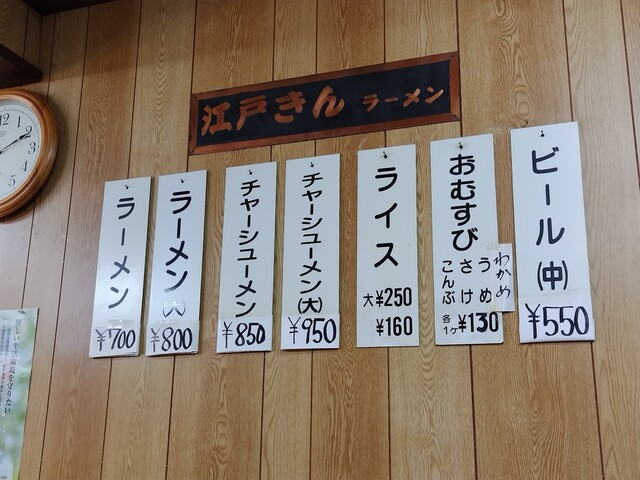 江戸きん ラーメン
ラーメン
¥700
ラーメン(大)
¥800
チャーシューメン
¥850
チャーシューメン(大)
¥950
ライス
大¥250
¥160
おむすび
わかめ
うめ
さけ
こんぶ
各1ケ¥130
ビール(中)
¥550
12
1
2
3
4
5